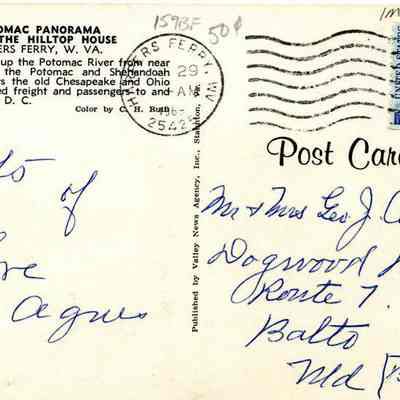 OMAC PANORAMA
THE HILLTOP HOUSE
ERS FERRY, W. VA.
up the Potomac River from near
the Potomac and Shenandoah
s the old Chesapeake and Ohio
ed freight and passengers to and
D. C.
Color by C. H. Ruth
ts
of
ve
Agnes
Published by Valley News Agency, Inc., Staunton, Va.
159BF
50¢
HARPERS FERRY, W.V.
29
AM
25425
Post Car
Mr & Mrs Geo. J.
Dogwood
Route 7
Balto
Md